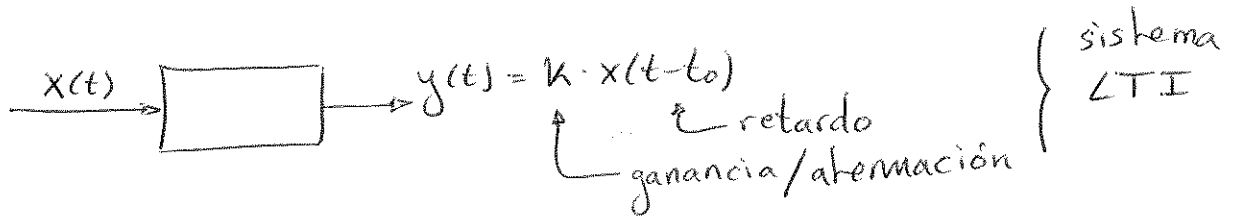 x(t)
y(t) = K · x(t-t₀)
retardo
ganancia/atenuación
sistema
LTI